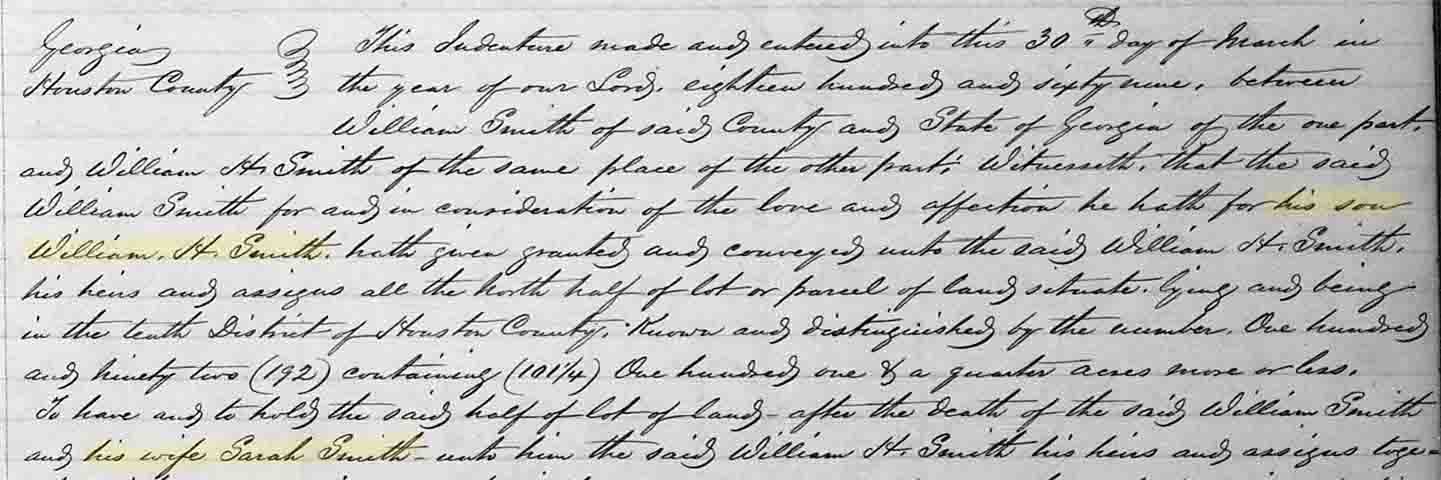 Georgia
Houston County
This Indenture made and entered into this 30th day of March in
the year of our Lord, eighteen hundred and sixty nine, between
William Smith of said County and State of Georgia of the one part,
and William H. Smith of the same place of the other part; Witnesseth, that the said
William Smith for and in consideration of the love and affection he hath for his son
William. H. Smith. hath given granted and conveyed unto the said William H. Smith,
his heirs and assigns all the North half of lot or parcel of land situate. lying and being
in the tenth District of Houston County, Known and distinguished by the number. One hundred
and ninety two (192) containing (101 1/4) One hundred one & a quarter acres more or less.
To have and to hold the said half of lot of land - after the death of the said William Smith
and his wife Sarah Smith - unto him the said William H. Smith his heirs and assigns toge=